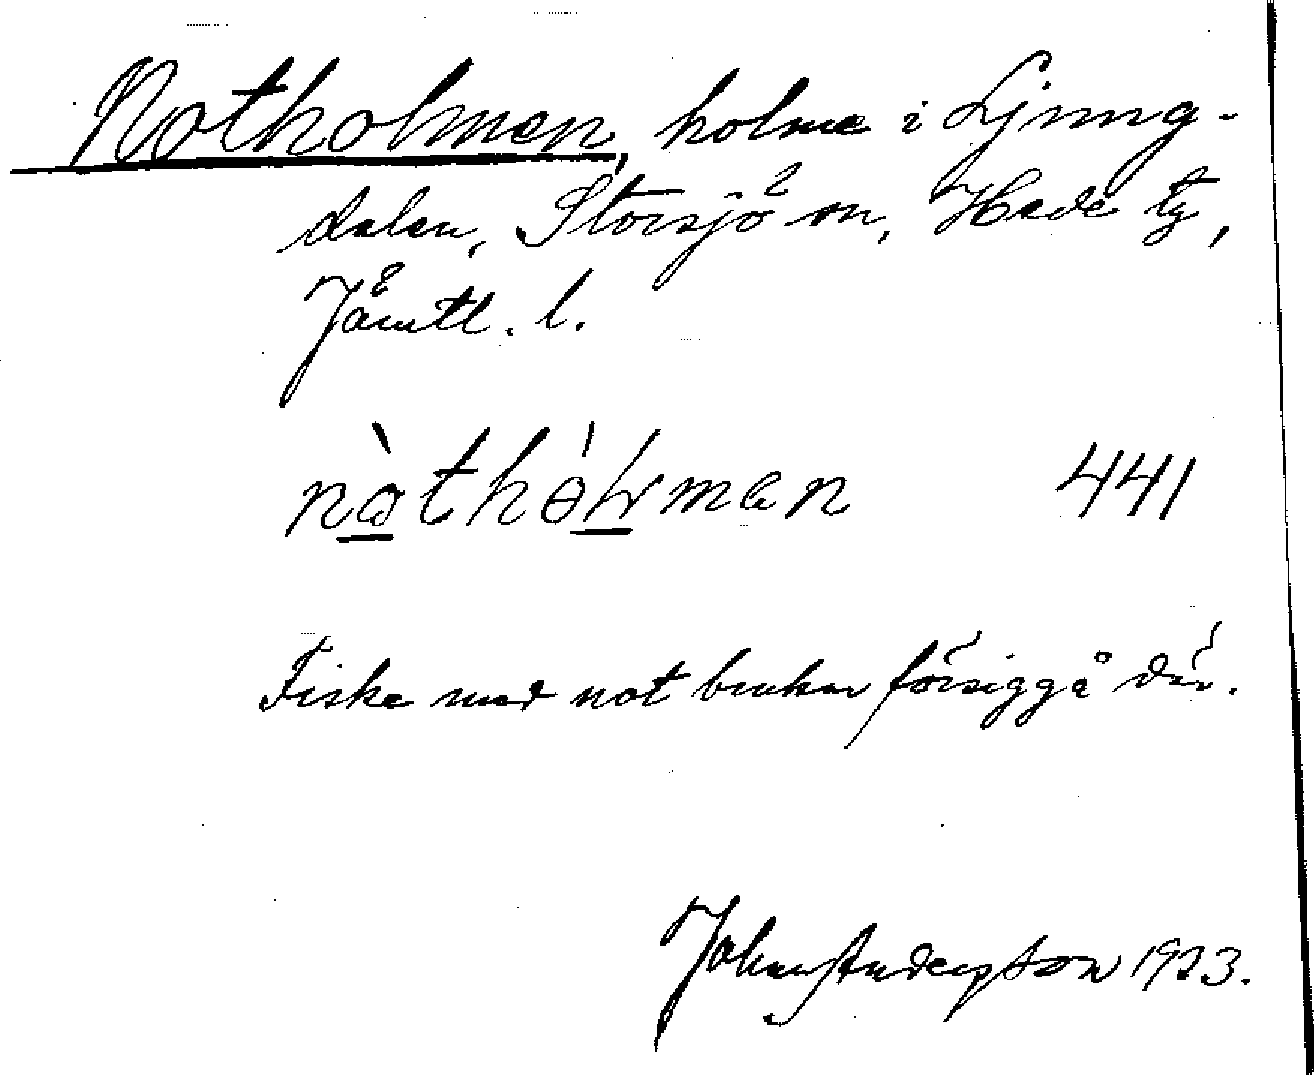 Notholmen, holme i Ljung-
dalen, Storsjö sn, Hede tg,
Jämtl. l.
nòthólmen 441
Fiske med not brukar försiggå där.
Johan Anderson 1923.